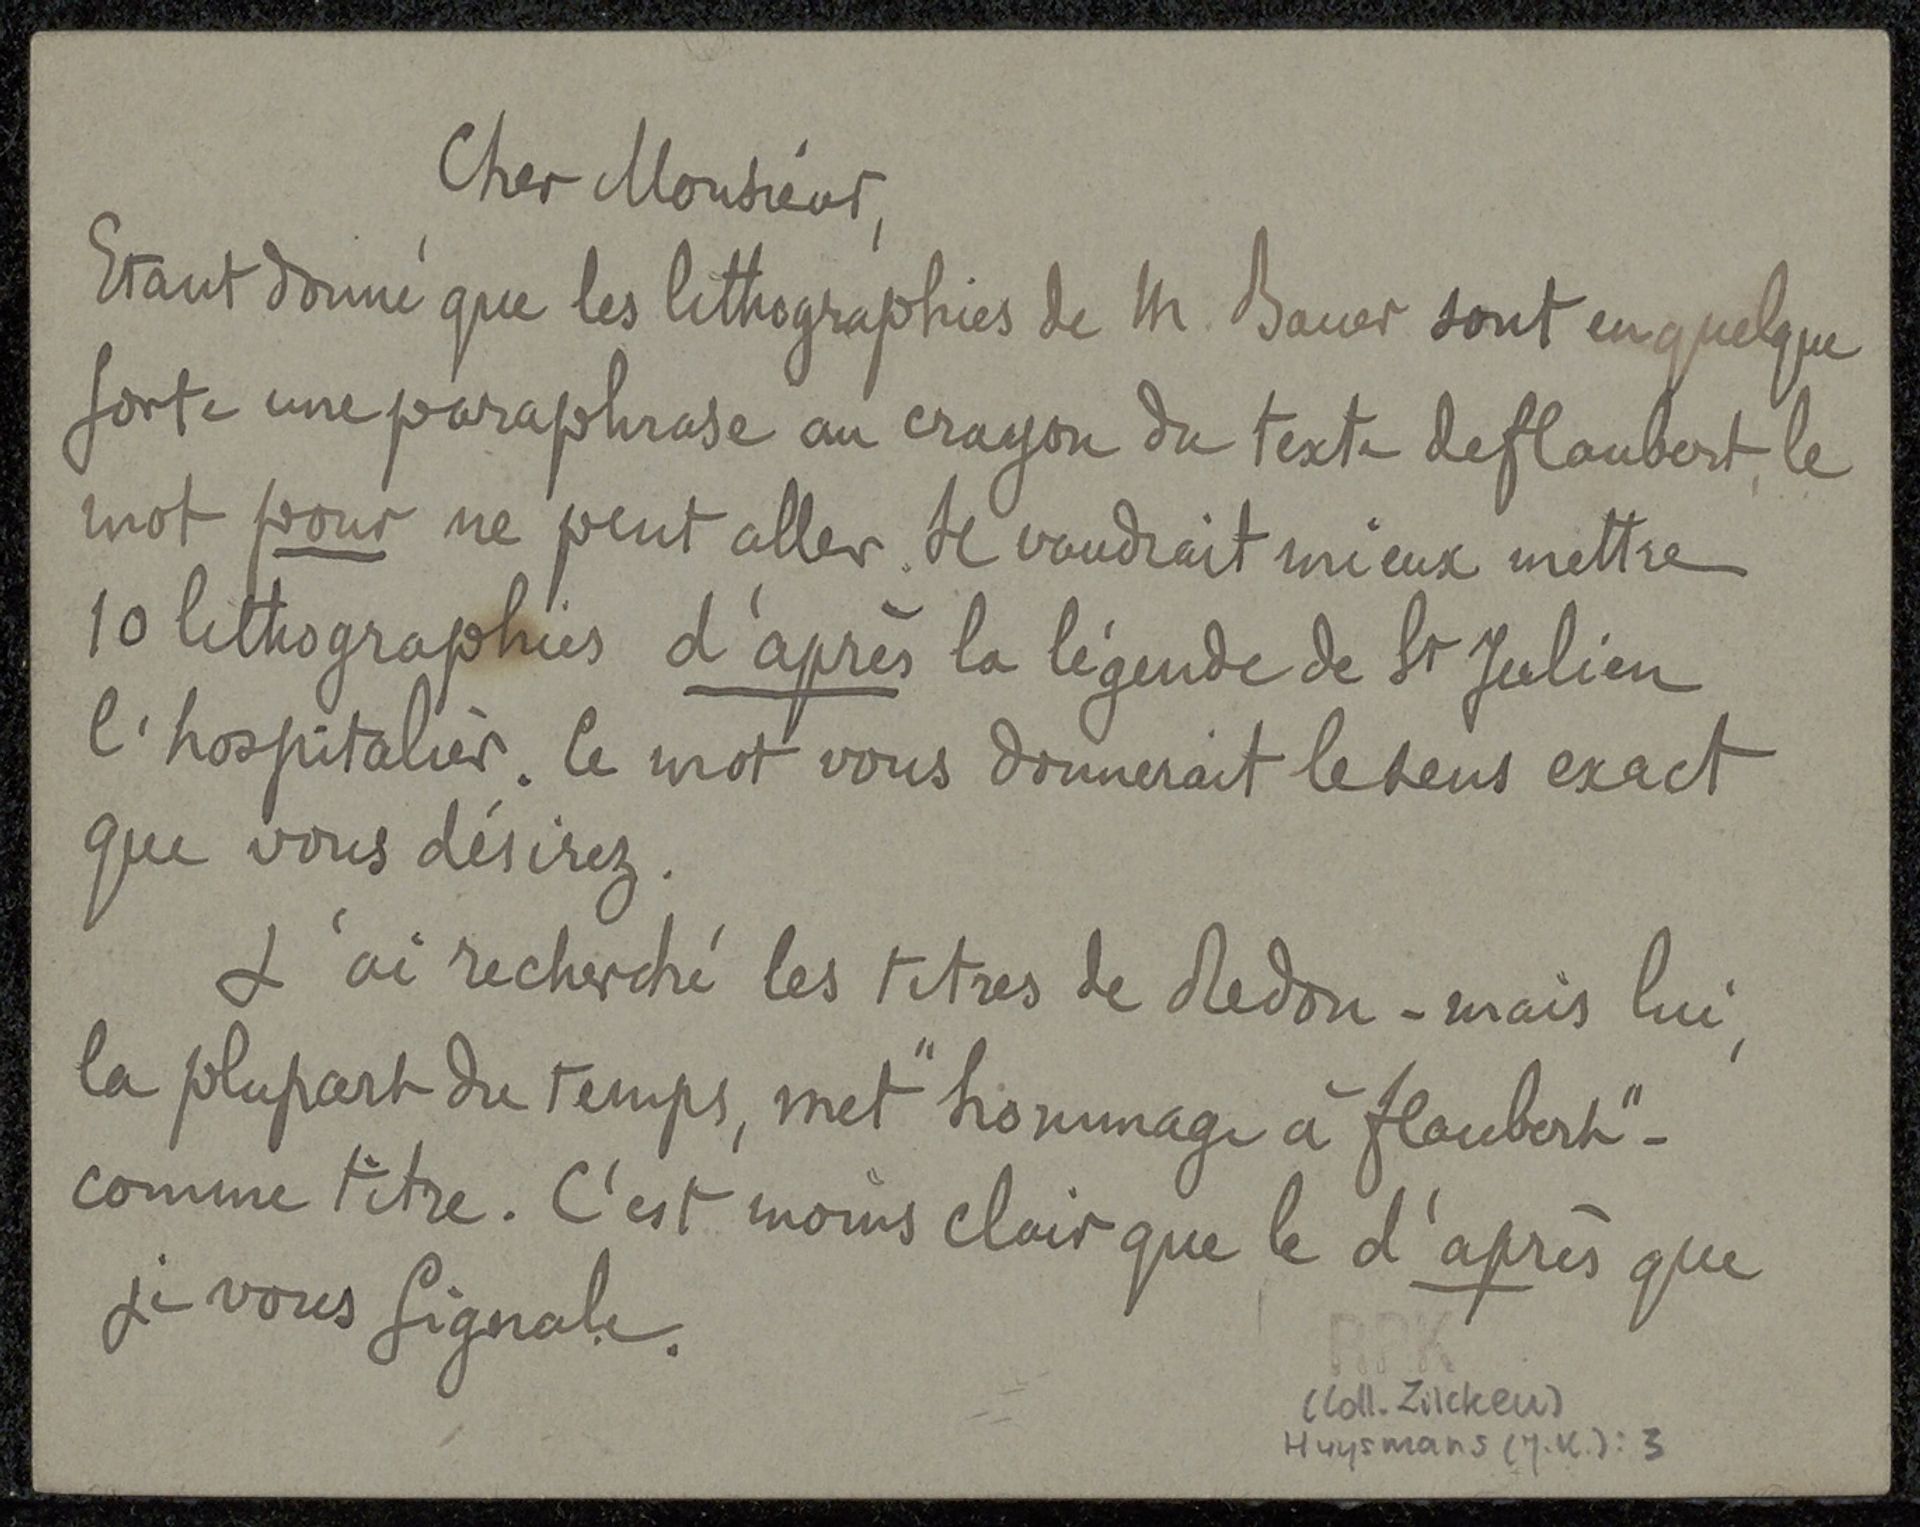 Cher Monsieur,
Etant donné que les lithographies de M. Bauer sont en quelque
sorte une paraphrase au crayon du texte de flaubert, le
mot pour ne peut aller. Il vaudrait mieux mettre
10 lithographies d'après la légende de St Julien
l'hospitalier. Ce mot vous donnerait le sens exact
que vous désirez.
J'ai recherché les titres de Redon - mais lui,
la plupart du temps, met "hommage à flaubert" -
comme titre. C'est moins clair que le d'après que
je vous signale.
RPK
(Coll. Zilcken)
Huysmans (J.K.): 3